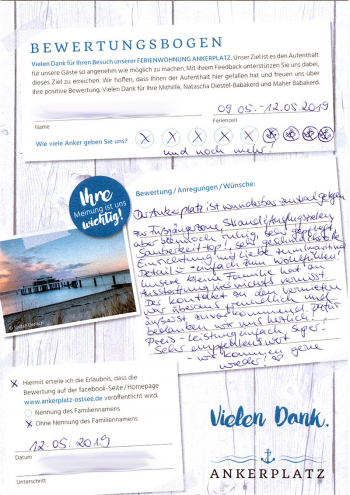 BEWERTUNGSBOGEN
Vielen Dank für Ihren Besuch unserer FERIENWOHNUNG ANKERPLATZ. Unser Ziel ist es den Aufenthalt
für unsere Gäste so angenehm wie möglich zu machen. Mit Ihrem Feedback unterstützen Sie uns dabei,
dieses Ziel zu erreichen. Wir hoffen, dass Ihnen der Aufenthalt hier gefallen hat und freuen uns über
Ihre positive Bewertung. Vielen Dank für Ihre Mithilfe, Natascha Diestel-Babakerd und Maher Babakerd.
09.05.-12.05.2019
Name
Ferienzeit
Wie viele Anker geben Sie uns?
und noch mehr!
Ihre
Meinung ist uns
wichtig!
Bewertung / Anregungen / Wünsche:
Der Ankerplatz ist wunderbar zentral gelegen
zur Fußgängerzone, Strand
aber dennoch ruhig. Sehr gepflegt,
Sauberkeit top! Sehr geschmackvolle
Einrichtung mit Liebe zum
Detail - einfach zum Wohlfühlen!
Unsere kleine Familie hat an
Ausstattung nichts vermisst
Der Kontakt zu den Vermietern
war überaus freundlich und
äußerst zuvorkommend. Dafür
bedanken wir uns herzlich!
Preis-Leistung einfach super!
Sehr empfehlenswert
- wir kommen gerne
wieder!
Hiermit erteile ich die Erlaubnis, dass die
Bewertung auf der facebook-Seite / Homepage
www.ankerplatz-ostsee.de veröffentlicht wird.
Nennung des Familiennamens
Ohne Nennung des Familiennamens
12.05.2019
Datum
Unterschrift
Vielen Dank.
ANKERPLATZ